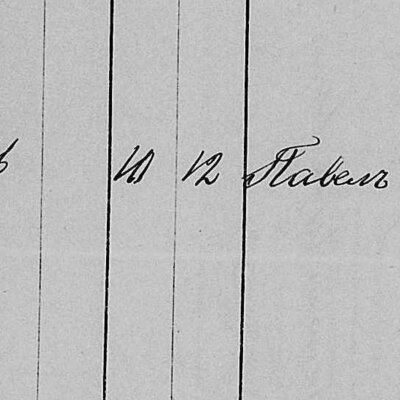 10 12 Павелъ